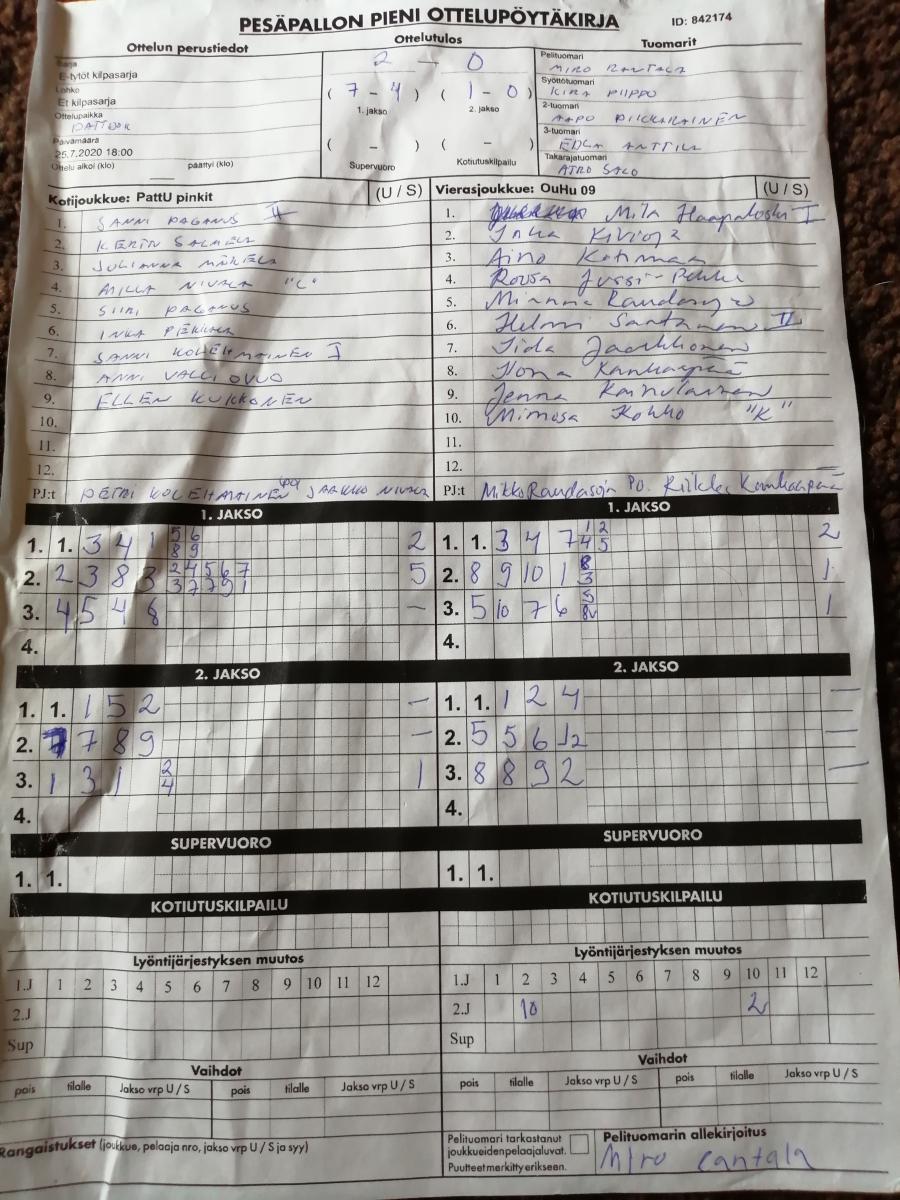 PESÄPALLON PIENI OTTELUPÖYTÄKIRJA
ID: 842174
Ottelun perustiedot
Sarja
E-tytöt kilpasarja
Lohko
Et kilpasarja
Ottelupaikka
PATTIJOKI
Päivämäärä
25.7.2020 18:00
Ottelu alkoi (klo) päättyi (klo)
Ottelutulos
2 – 0
( 7 - 4 ) ( 1 - 0 )
1. jakso 2. jakso
( – ) ( – )
Supervuoro Kotiutuskilpailu
Tuomarit
Pelituomari
MIRO RANTALA
Syöttötuomari
KIRA PIIPPO
2-tuomari
AAPO PIKKARAINEN
3-tuomari
EDLA ANTTILA
Takarajatuomari
ATRO SALO
Kotijoukkue: PattU pinkit (U / S)
1. SANNI PAGANUS II
2. KERTN SALMELA
3. JULIANNA MÄKELÄ
4. MILLA NIVALA "C"
5. SIIRI PAGANUS
6. INKA
7. SANNI KOLEHMAINEN I
8. ANNI VALLIOVUO
9. ELLEN KUKKONEN
10.
11.
12.
PJ:t PETRI KOLEHMAINEN (PO) JAAKKO NIVALA
Vierasjoukkue: OuHu 09 (U / S)
1. Mila Haapakoski I
2. Inka Kivioja
3. Aino Kotimaa
4. Roosa Jussi-Pekka
5. Minna Raudasoja
6. Helmi Santanen II
7. Iida Jaakkonen
8. Ilona Kankaanpää
9. Jenna Kainulainen
10. Mimosa Kokko "K"
11.
12.
PJ:t Mikko Raudasoja PO. Riikka Kankaanpää
1. JAKSO
1. 1. 3 4 1 5 6 2
8 9
2. 2 3 8 3 2 4 5 6 7 5
3 7 7 9 1
3. 4 5 4 6 –
4.
1. JAKSO
1. 1. 3 4 7 1 2 2
4 5
2. 8 9 10 1 8 1
3
3. 5 10 7 6 5 1
8v
4.
2. JAKSO
1. 1. 1 5 2 –
2. 7 7 8 9 –
3. 1 3 1 2 1
4
4.
2. JAKSO
1. 1. 1 2 4 –
2. 5 5 6 12 –
3. 8 8 9 2 –
4.
SUPERVUORO
1. 1.
SUPERVUORO
1. 1.
KOTIUTUSKILPAILU
KOTIUTUSKILPAILU
Lyöntijärjestyksen muutos
1.J 1 2 3 4 5 6 7 8 9 10 11 12
2.J
Sup
Lyöntijärjestyksen muutos
1.J 1 2 3 4 5 6 7 8 9 10 11 12
2.J 10 2
Sup
Vaihdot
pois tilalle Jakso vrp U / S pois tilalle Jakso vrp U / S
Vaihdot
pois tilalle Jakso vrp U / S pois tilalle Jakso vrp U / S
Rangaistukset (joukkue, pelaaja nro, jakso vrp U / S ja syy)
Pelituomari tarkastanut
joukkueidenpelaajaluvat.
Puutteet merkitty erikseen.
Pelituomarin allekirjoitus
Miro Rantala